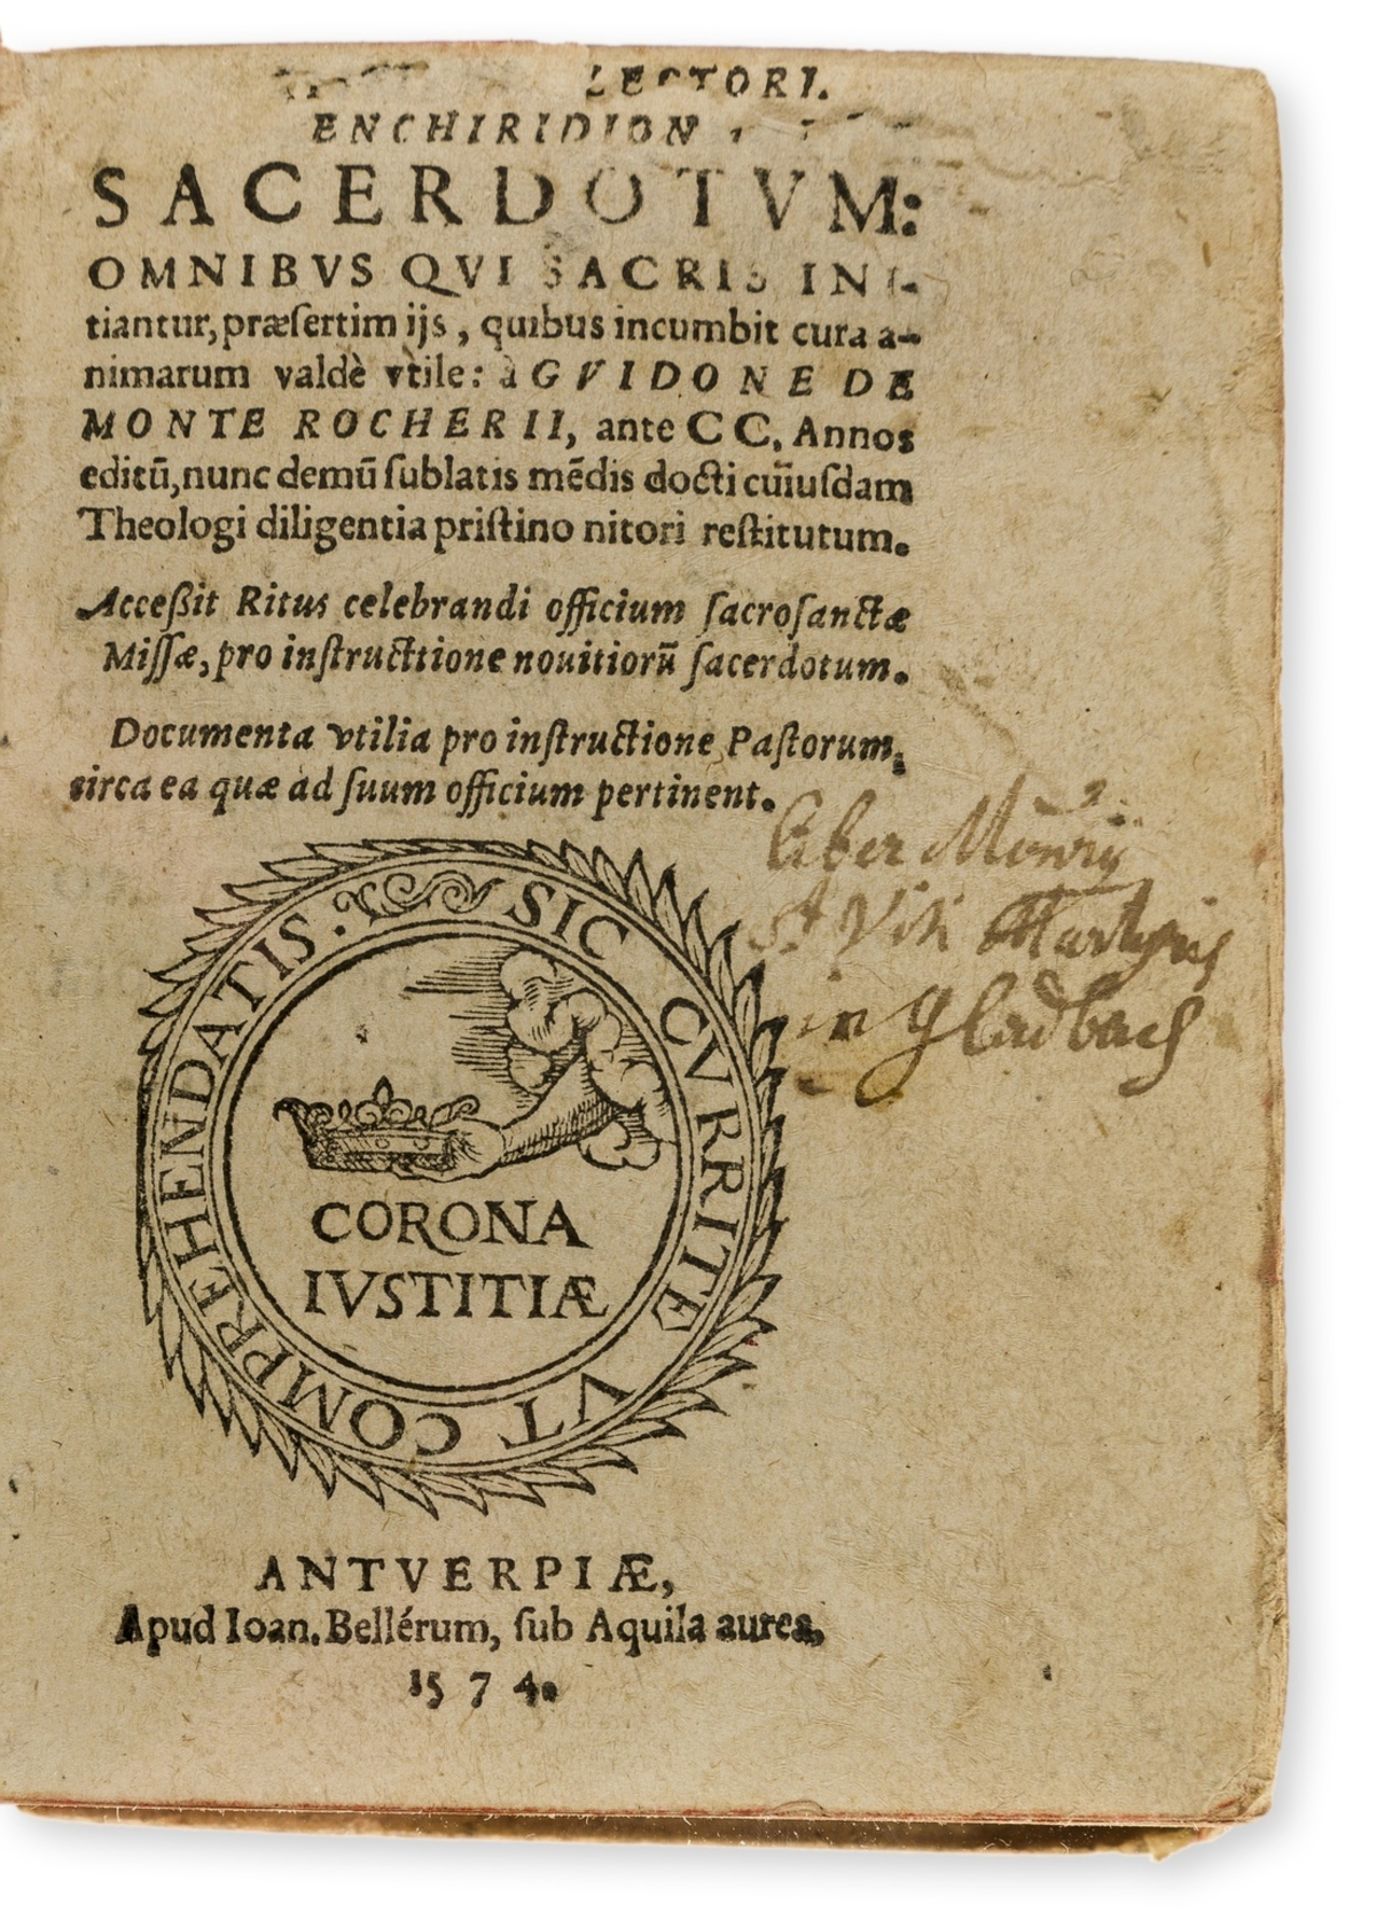 LECTORI.
ENCHIRIDION
SACERDOTVM:
OMNIBVS QVI SACRIS INI-
tiantur, præſertim ijs, quibus incumbit cura a-
nimarum valdè vtile: à GVIDONE DE
MONTE ROCHERII, ante CC. Annos
editū, nunc demū ſublatis mēdis docti cuiuſdam
Theologi diligentia priſtino nitori reſtitutum.
Acceßit Ritus celebrandi officium ſacroſanctæ
Miſſæ, pro inſtructtione nouitiorū ſacerdotum.
Documenta vtilia pro inſtructione Paſtorum,
circa ea quæ ad ſuum officium pertinent.
liber Monrij
St Viti Martyris
in Gladbach
SIC CVRRITE VT COMPREHENDATIS.
CORONA
IVSTITIÆ
ANTVERPIÆ,
Apud Ioan. Bellérum, ſub Aquila aurea,
1574.